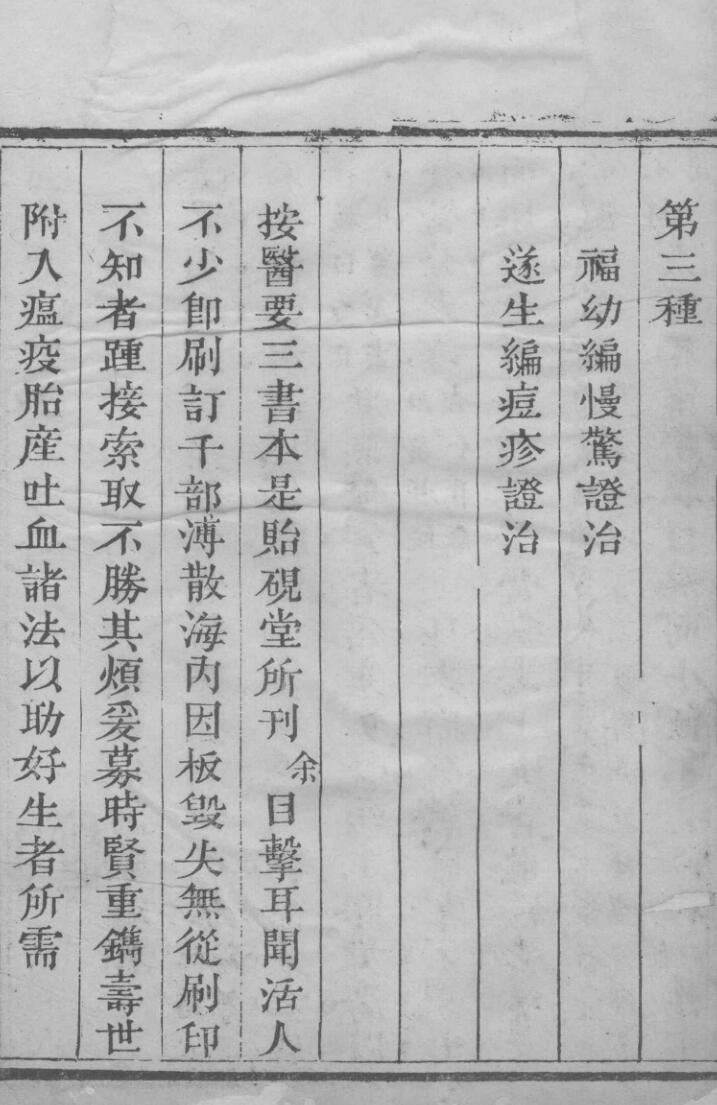 第三種
福幼編慢驚證治
遂生編痘疹證治
按醫要三書本是貽硯堂所刊余目擊耳聞活人
不少卽刷訂千部溥散海內因板毀失無從刷印
不知者踵接索取不勝其煩爰募時賢重鐫壽世
附入瘟疫胎產吐血諸法以助好生者所需